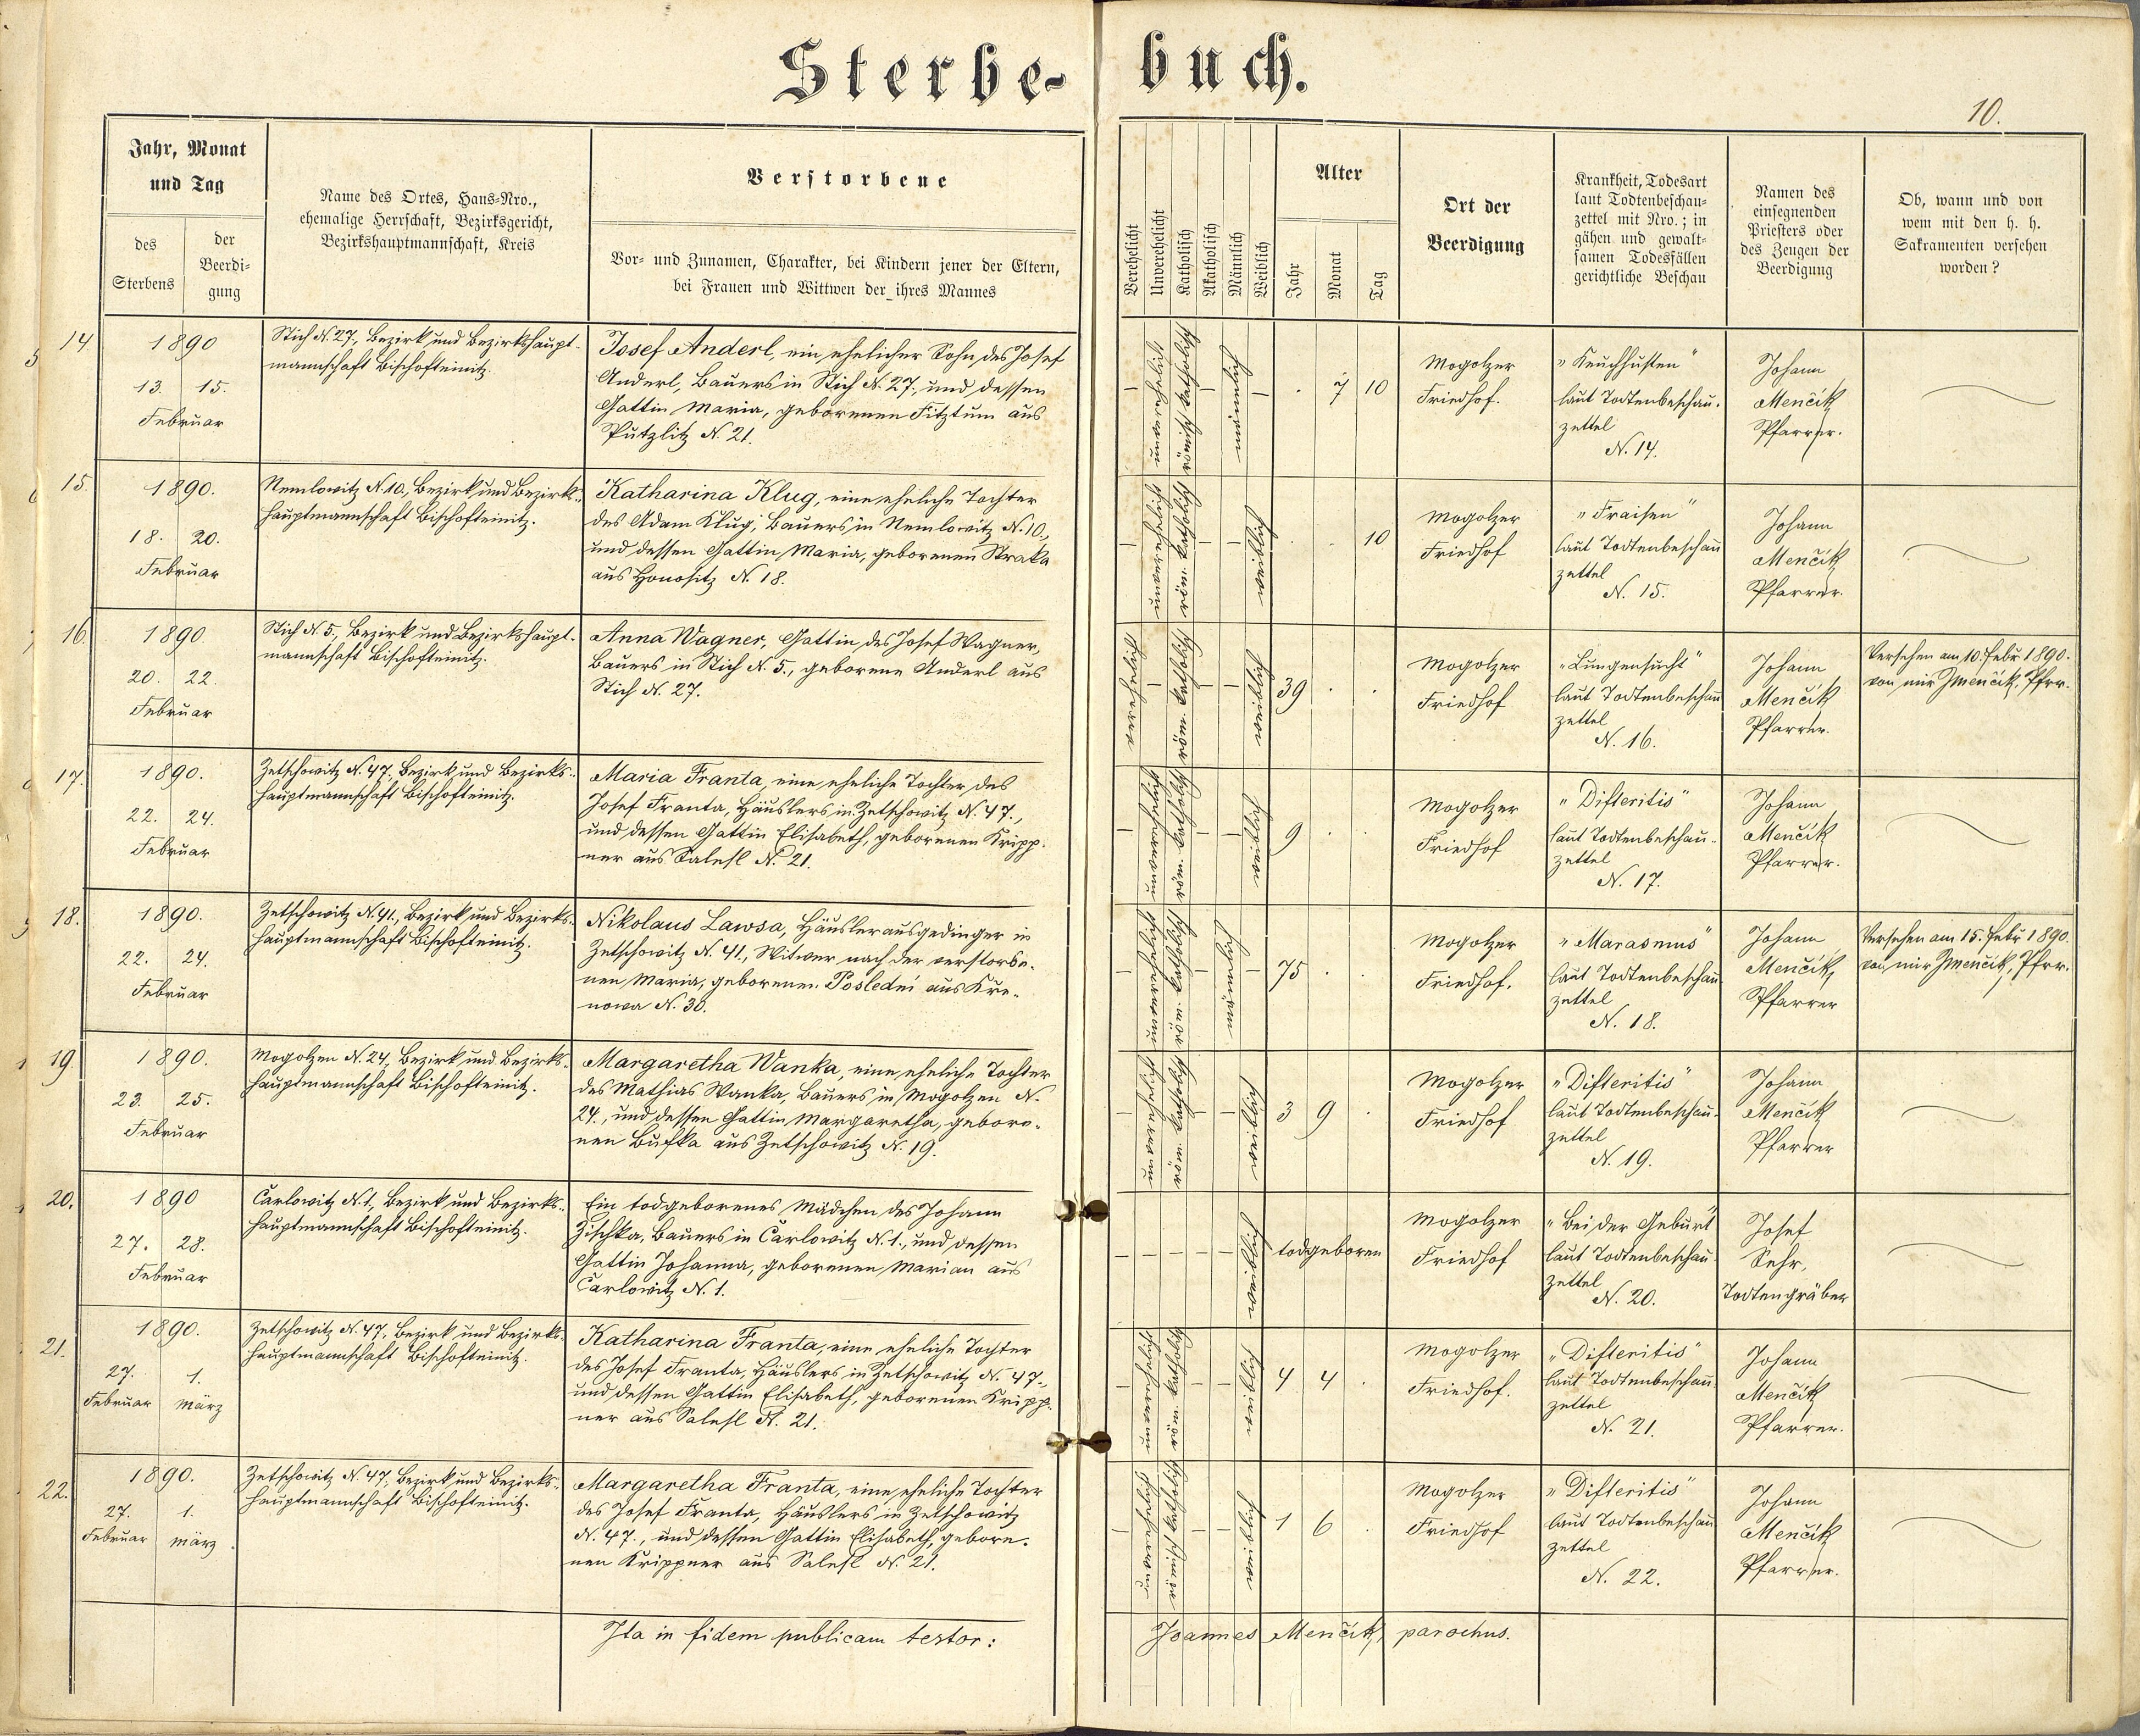 Sterbe-buch.
10.
Jahr, Monat
und Tag
des
Sterbens
der
Beerdi-
gung
Name des Ortes, Haus-Nro.,
ehemalige Herrschaft, Bezirksgericht,
Bezirkshauptmannschaft, Kreis
Verstorbene
Vor- und Zunamen, Charakter, bei Kindern jener der Eltern,
bei Frauen und Wittwen der ihres Mannes
Verehelicht
Unverehelicht
Katholisch
Akatholisch
Männlich
Weiblich
Alter
Jahr
Monat
Tag
Ort der
Beerdigung
Krankheit, Todesart
laut Todtenbeschau-
zettel mit Nro.; in
gähen und gewalt-
samen Todesfällen
gerichtliche Beschau
Namen des
einsegnenden
Priesters oder
des Zeugen der
Beerdigung
Ob, wann und von
wem mit den h. h.
Sakramenten versehen
worden?
14.
1890
13. 15.
Februar
Stich N. 27., Bezirk und Bezirkshaupt-
mannschaft Bischofteinitz.
Josef Anderl, ein ehelicher Sohn des Josef
Anderl, Bauers in Stich N. 27., und dessen
Gattin Maria, geborenen Fitztum aus
Putzlitz N. 21.
unverehelicht
römisch katholisch
männlich
7 10
Mogolzer
Friedhof.
„Keuchhusten"
laut Todtenbeschau-
zettel
N. 14.
Johann
Menčik
Pfarrer.
15.
1890.
18. 20.
Februar
Nemlowitz N. 10., Bezirk und Bezirks-
hauptmannschaft Bischofteinitz.
Katharina Klug, eine eheliche Tochter
des Adam Klug, Bauers in Nemlowitz N. 10.,
und dessen Gattin Maria, geborenen Straka
aus Honositz N. 18.
unverehelicht
röm. katholisch
weiblich
10
Mogolzer
Friedhof
„Fraisen"
laut Todtenbeschau
zettel
N. 15.
Johann
Menčik
Pfarrer.
16.
1890.
20. 22.
Februar
Stich N. 5., Bezirk und Bezirkshaupt-
mannschaft Bischofteinitz.
Anna Wagner, Gattin des Josef Wagner,
Bauers in Stich N. 5., geborene Anderl aus
Stich N. 27.
verehelicht
röm. katholisch
weiblich
39
Mogolzer
Friedhof
„Lungensucht"
laut Todtenbeschau
zettel
N. 16.
Johann
Menčik
Pfarrer.
Versehen am 10. Febr 1890.
von mir JMenčik, Pfrr.
17.
1890.
22. 24.
Februar
Zetschowitz N. 47., Bezirk und Bezirks-
hauptmannschaft Bischofteinitz.
Maria Franta, eine eheliche Tochter des
Josef Franta, Häuslers in Zetschowitz N. 47.,
und dessen Gattin Elisabeth, geborenen Kripp-
ner aus Salesl N. 21.
unverehelicht
röm. katholisch
weiblich
9
Mogolzer
Friedhof
„Difteritis"
laut Todtenbeschau-
zettel
N. 17.
Johann
Menčik
Pfarrer.
18.
1890.
22. 24.
Februar
Zetschowitz N. 41., Bezirk und Bezirks-
hauptmannschaft Bischofteinitz.
Nikolaus Lawsa, Häuslerausgedinger in
Zetschowitz N. 41., Witwer nach der verstorbe-
nen Maria, geborenen Posledni aus Kře-
nowa N. 30.
unverehelicht
röm. katholisch
männlich
75
Mogolzer
Friedhof.
„Marasmus"
laut Todtenbeschau
zettel
N. 18.
Johann
Menčik,
Pfarrer
Versehen am 15. Febr 1890.
von mir JMenčik, Pfrr.
19.
1890.
23. 25.
Februar
Mogolzen N. 24., Bezirk und Bezirks-
hauptmannschaft Bischofteinitz.
Margaretha Wanka, eine eheliche Tochter
des Mathias Wanka, Bauers in Mogolzen N.
24., und dessen Gattin Margaretha, gebore-
nen Bufka aus Zetschowitz N. 19.
unverehelicht
röm. katholisch
weiblich
3 9
Mogolzer
Friedhof
„Difteritis"
laut Todtenbeschau-
zettel
N. 19.
Johann
Menčik
Pfarrer
20.
1890
27. 28.
Februar
Carlowitz N. 1., Bezirk und Bezirks-
hauptmannschaft Bischofteinitz.
Ein todgeborenes Mädchen des Johann
Zischka, Bauers in Carlowitz N. 1., und dessen
Gattin Johanna, geborenen Marian aus
Carlowitz N. 1.
weiblich
todgeboren
Mogolzer
Friedhof
„Bei der Geburt"
laut Todtenbeschau
zettel
N. 20.
Josef
Sehr,
Todtengräber
21.
1890.
27. 1.
Februar März
Zetschowitz N. 47., Bezirk und Bezirks-
hauptmannschaft Bischofteinitz.
Katharina Franta, eine eheliche Tochter
des Josef Franta, Häuslers in Zetschowitz N. 47.,
und dessen Gattin Elisabeth, geborenen Kripp-
ner aus Salesl N. 21.
unverehelicht
röm. katholisch
weiblich
4 4
Mogolzer
Friedhof.
„Difteritis"
laut Todtenbeschau
zettel
N. 21.
Johann
Menčik
Pfarrer.
22.
1890.
27. 1.
Februar März
Zetschowitz N. 47., Bezirk und Bezirks-
hauptmannschaft Bischofteinitz.
Margaretha Franta, eine eheliche Tochter
des Josef Franta, Häuslers in Zetschowitz
N. 47., und dessen Gattin Elisabeth, gebore-
nen Krippner aus Salesl N. 21.
unverehelicht
römisch katholisch
weiblich
1 6
Mogolzer
Friedhof
„Difteritis"
laut Todtenbeschau
zettel
N. 22.
Johann
Menčik
Pfarrer.
Ita in fidem publicam testor:
Joannes Menčik, parochus.